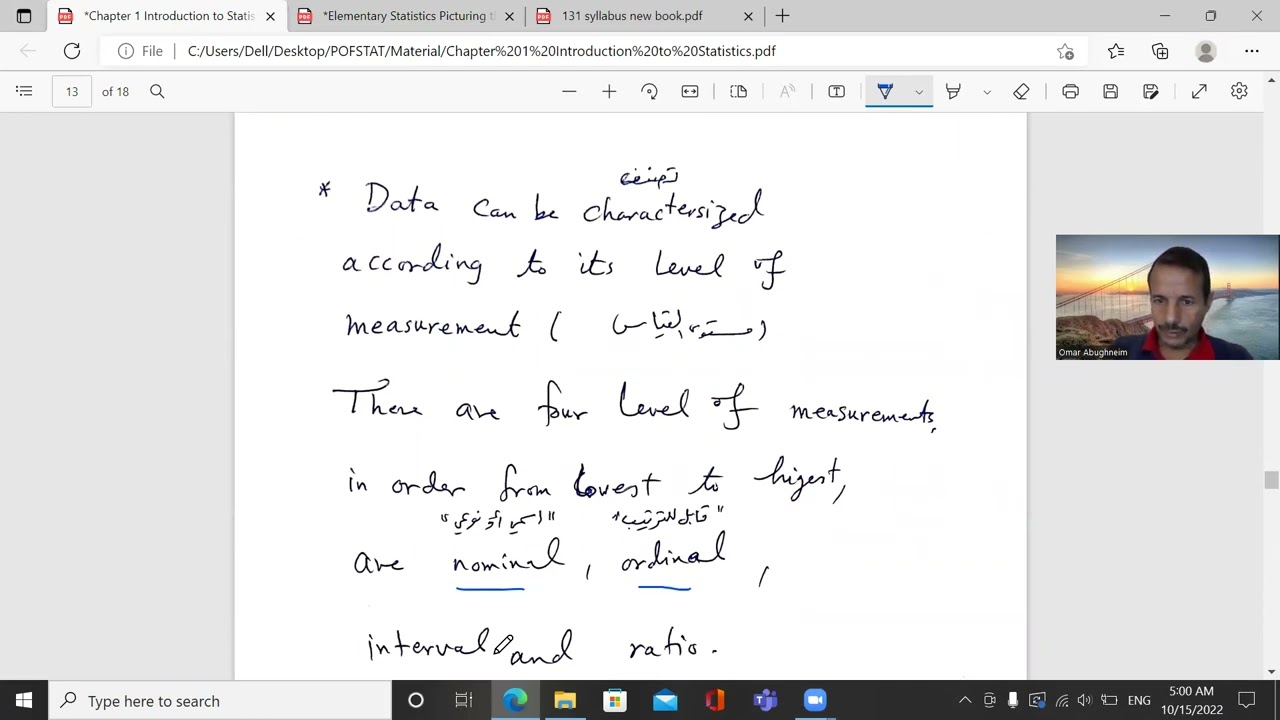 *Chapter 1 Introduction to Statis
*Elementary Statistics Picturing t
131 syllabus new book.pdf
File
C:/Users/Dell/Desktop/POFSTAT/Material/Chapter%201%20Introduction%20to%20Statistics.pdf
13 of 18
تصنيف
* Data can be charactersized
according to its level of
measurement ( مستوى القياس )
There are four level of measurements,
in order from lowest to higest,
"اسمي أو نوعي" "قابل للترتيب"
are nominal, ordinal,
interval and ratio.
Omar Abughneim
Type here to search
ENG
5:00 AM
10/15/2022